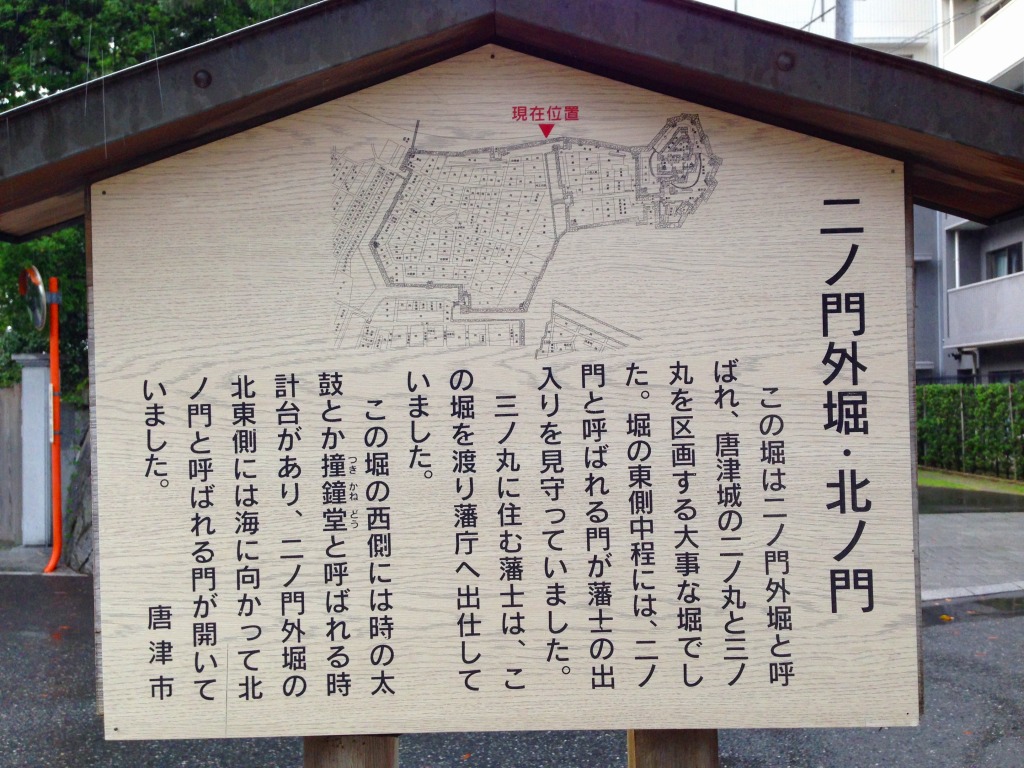 現在位置
二ノ門外堀・北ノ門
この堀は二ノ門外堀と呼
ばれ、唐津城の二ノ丸と三ノ
丸を区画する大事な堀でし
た。堀の東側中程には、二ノ
門と呼ばれる門が藩士の出
入りを見守っていました。
三ノ丸に住む藩士は、こ
の堀を渡り藩庁へ出仕して
いました。
この堀の西側には時の太
鼓とか撞鐘堂と呼ばれる時
つき かね どう
計台があり、二ノ門外堀の
北東側には海に向かって北
ノ門と呼ばれる門が開いて
いました。
唐津市